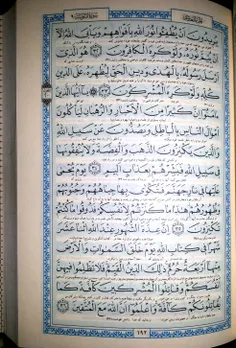 يُرِيدُونَ أَنْ يُطْفِئُوا نُورَ اللَّهِ بِأَفْوَاهِهِمْ وَيَأْبَى اللَّهُ إِلَّا
أَنْ يُتِمَّ نُورَهُ وَلَوْ كَرِهَ الْكَافِرُونَ ﴿٣٢﴾ هُوَ الَّذِي
أَرْسَلَ رَسُولَهُ بِالْهُدَى وَدِينِ الْحَقِّ لِيُظْهِرَهُ عَلَى الدِّينِ
كُلِّهِ وَلَوْ كَرِهَ الْمُشْرِكُونَ ﴿٣٣﴾ يَا أَيُّهَا الَّذِينَ
آمَنُوا إِنَّ كَثِيرًا مِنَ الْأَحْبَارِ وَالرُّهْبَانِ لَيَأْكُلُونَ
أَمْوَالَ النَّاسِ بِالْبَاطِلِ وَيَصُدُّونَ عَنْ سَبِيلِ اللَّهِ
وَالَّذِينَ يَكْنِزُونَ الذَّهَبَ وَالْفِضَّةَ وَلَا يُنْفِقُونَهَا
فِي سَبِيلِ اللَّهِ فَبَشِّرْهُمْ بِعَذَابٍ أَلِيمٍ ﴿٣٤﴾ يَوْمَ يُحْمَى
عَلَيْهَا فِي نَارِ جَهَنَّمَ فَتُكْوَى بِهَا جِبَاهُهُمْ وَجُنُوبُهُمْ
وَظُهُورُهُمْ هَذَا مَا كَنَزْتُمْ لِأَنْفُسِكُمْ فَذُوقُوا مَا كُنْتُمْ
تَكْنِزُونَ ﴿٣٥﴾ إِنَّ عِدَّةَ الشُّهُورِ عِنْدَ اللَّهِ اثْنَا عَشَرَ
شَهْرًا فِي كِتَابِ اللَّهِ يَوْمَ خَلَقَ السَّمَاوَاتِ وَالْأَرْضَ
مِنْهَا أَرْبَعَةٌ حُرُمٌ ذَلِكَ الدِّينُ الْقَيِّمُ فَلَا تَظْلِمُوا فِيهِنَّ
أَنْفُسَكُمْ وَقَاتِلُوا الْمُشْرِكِينَ كَافَّةً كَمَا
يُقَاتِلُونَكُمْ كَافَّةً وَاعْلَمُوا أَنَّ اللَّهَ مَعَ الْمُتَّقِينَ ﴿٣٦﴾
١٩٢